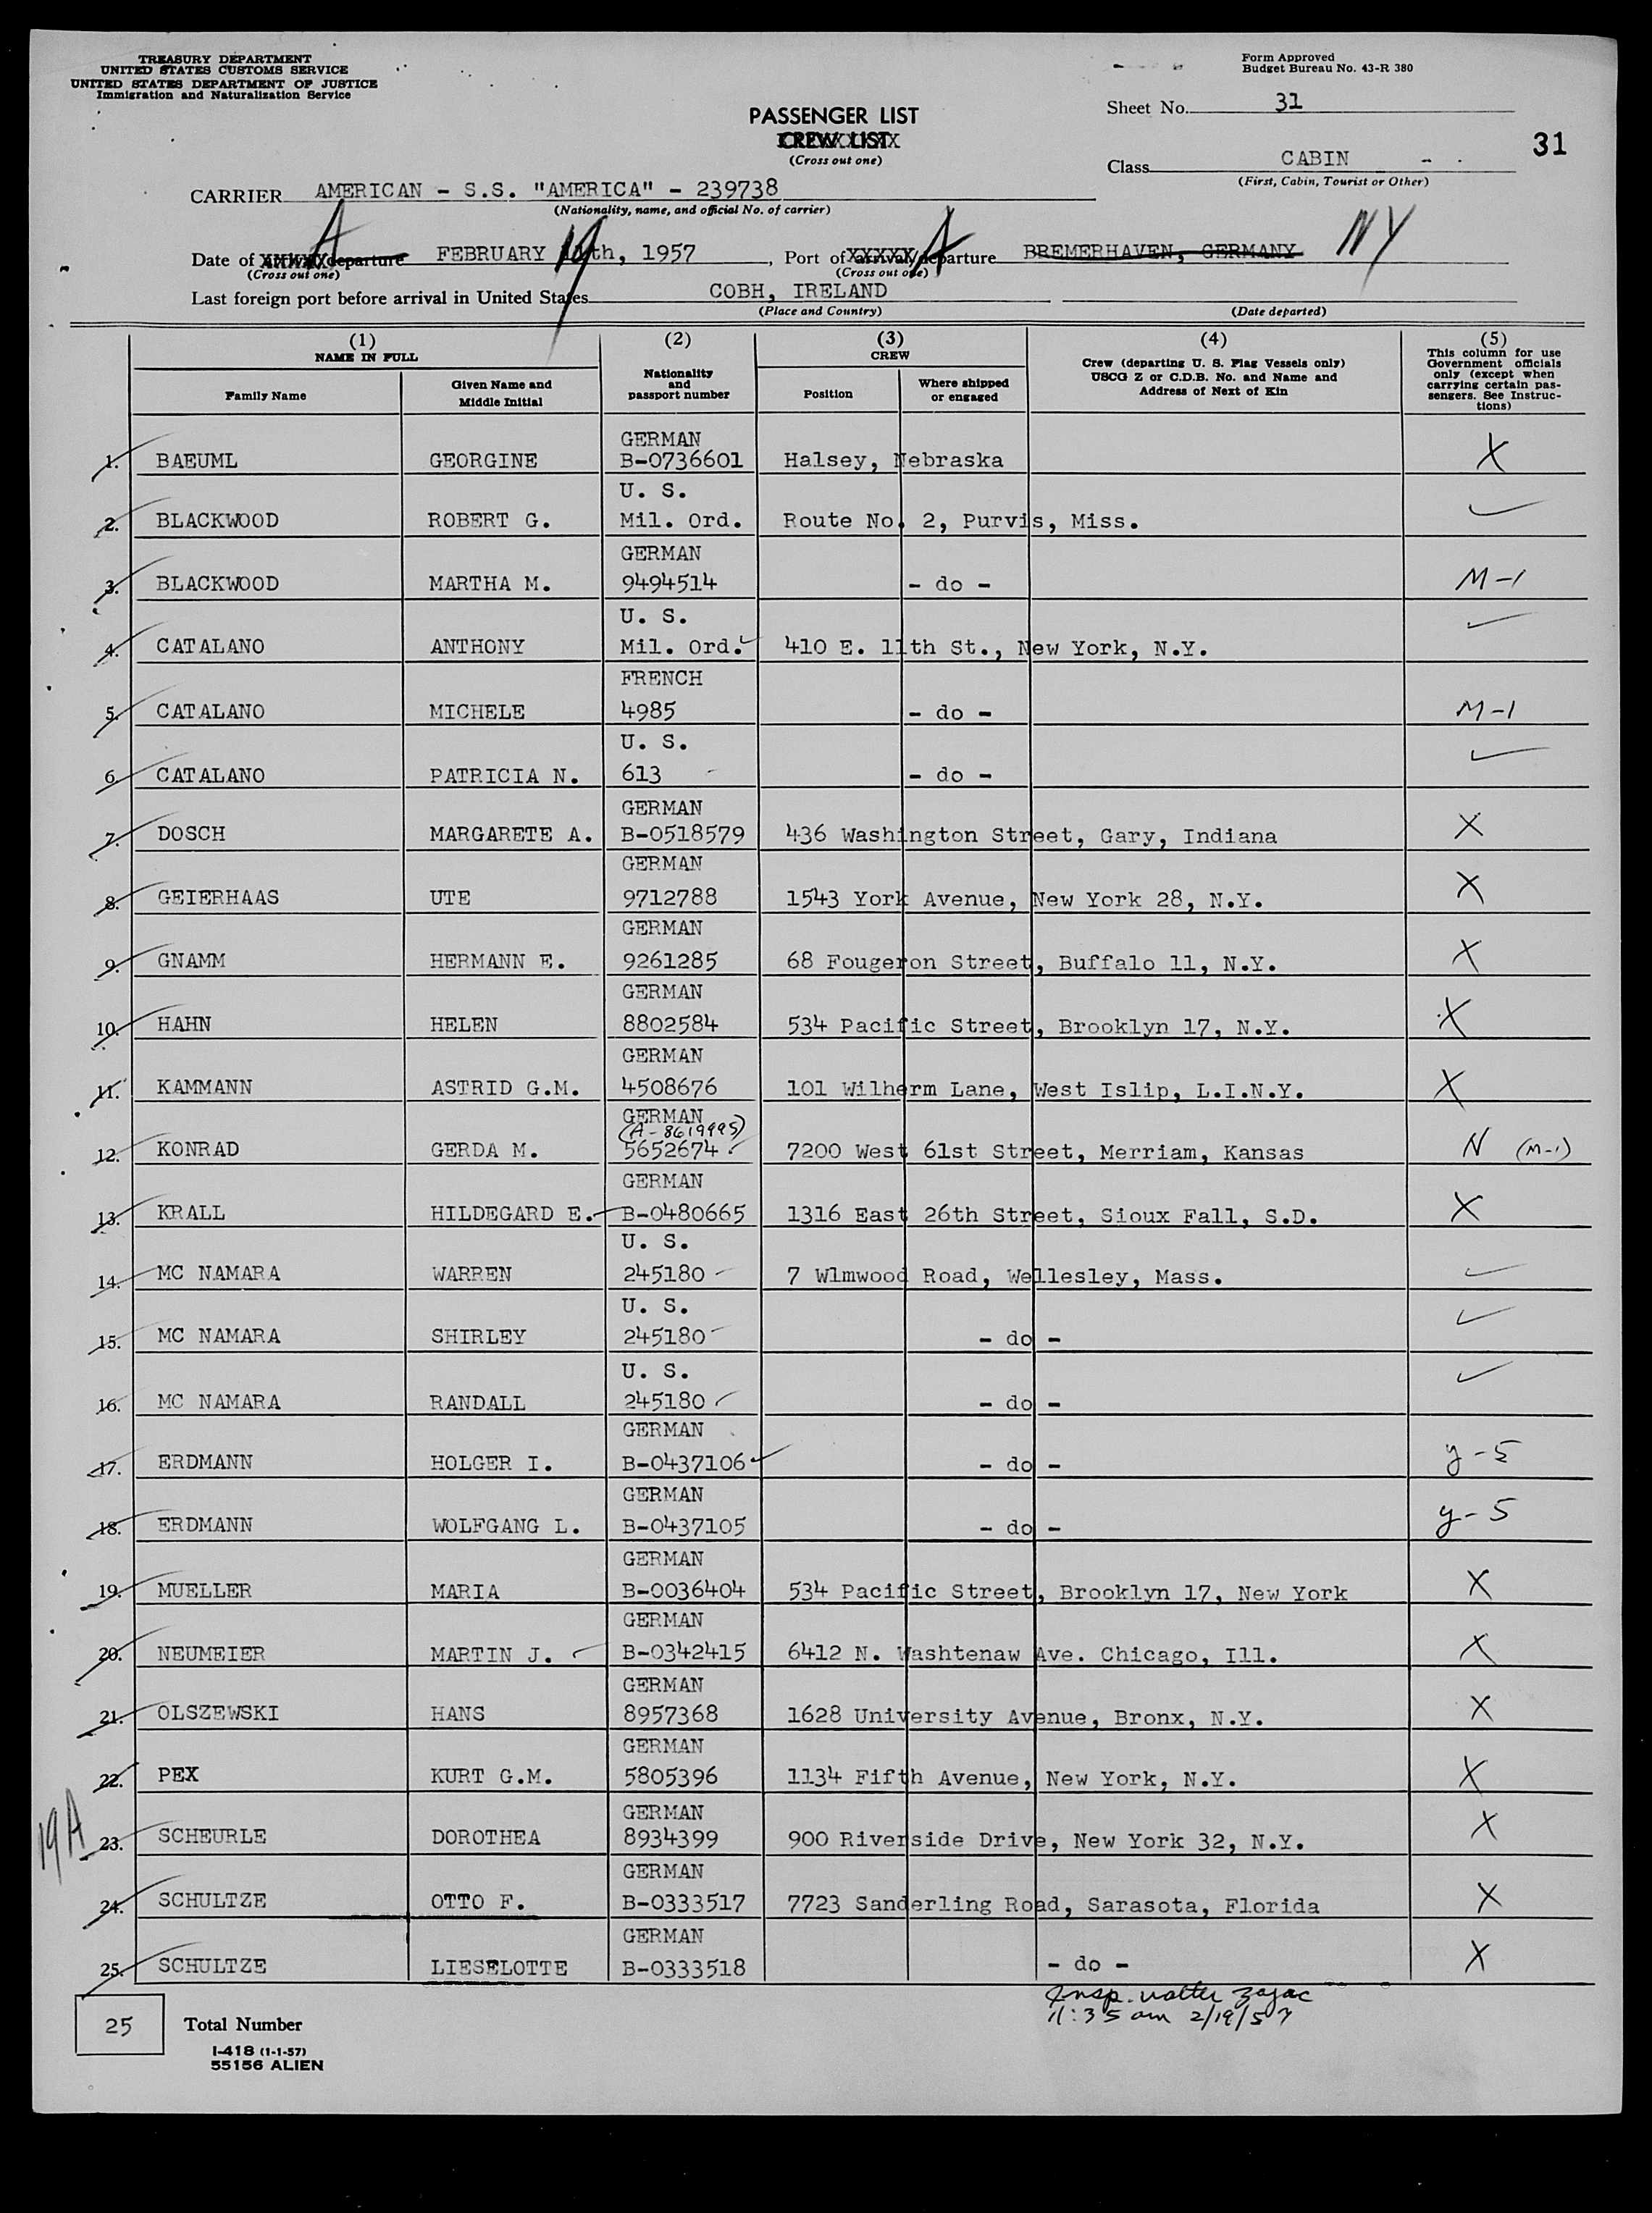 TREASURY DEPARTMENT
UNITED STATES CUSTOMS SERVICE
UNITED STATES DEPARTMENT OF JUSTICE
Immigration and Naturalization Service
Form Approved
Budget Bureau No. 43-R 380
Sheet No. 31
31
PASSENGER LIST
CREW LIST
(Cross out one)
Class CABIN
(First, Cabin, Tourist or Other)
CARRIER AMERICAN - S.S. "AMERICA" - 239738
(Nationality, name, and official No. of carrier)
Date of arrival/departure A FEBRUARY 19 th, 1957, Port of arrival/departure A BREMERHAVEN, GERMANY NY
(Cross out one) (Cross out one)
Last foreign port before arrival in United States COBH, IRELAND
(Place and Country) (Date departed)
(1) NAME IN FULL
Family Name
Given Name and Middle Initial
(2) Nationality and passport number
(3) CREW
Position
Where shipped or engaged
(4) Crew (departing U. S. Flag Vessels only) USCG Z or C.D.B. No. and Name and Address of Next of Kin
(5) This column for use Government officials only (except when carrying certain passengers. See Instructions)
GERMAN
1. BAEUML GEORGINE B-0736601 Halsey, Nebraska X
U. S.
2. BLACKWOOD ROBERT G. Mil. Ord. Route No. 2, Purvis, Miss. ✓
GERMAN
3. BLACKWOOD MARTHA M. 9494514 - do - M-1
U. S.
4. CATALANO ANTHONY Mil. Ord. ✓ 410 E. 11th St., New York, N.Y. ✓
FRENCH
5. CATALANO MICHELE 4985 - do - M-1
U. S.
6. CATALANO PATRICIA N. 613 - do - ✓
GERMAN
7. DOSCH MARGARETE A. B-0518579 436 Washington Street, Gary, Indiana X
GERMAN
8. GEIERHAAS UTE 9712788 1543 York Avenue, New York 28, N.Y. X
GERMAN
9. GNAMM HERMANN E. 9261285 68 Fougeron Street, Buffalo 11, N.Y. X
GERMAN
10. HAHN HELEN 8802584 534 Pacific Street, Brooklyn 17, N.Y. X
GERMAN
11. KAMMANN ASTRID G.M. 4508676 101 Wilherm Lane, West Islip, L.I.N.Y. X
GERMAN
(A-8619995)
12. KONRAD GERDA M. 5652674 ✓ 7200 West 61st Street, Merriam, Kansas N (M-1)
GERMAN
13. KRALL HILDEGARD E. B-0480665 1316 East 26th Street, Sioux Fall, S.D. X
U. S.
14. MC NAMARA WARREN 245180 7 Wlmwood Road, Wellesley, Mass. ✓
U. S.
15. MC NAMARA SHIRLEY 245180 - do - ✓
U. S.
16. MC NAMARA RANDALL 245180 ✓ - do - ✓
GERMAN
17. ERDMANN HOLGER I. B-0437106 ✓ - do - y-5
GERMAN
18. ERDMANN WOLFGANG L. B-0437105 - do - y-5
GERMAN
19. MUELLER MARIA B-0036404 534 Pacific Street, Brooklyn 17, New York X
GERMAN
20. NEUMEIER MARTIN J. ✓ B-0342415 6412 N. Washtenaw Ave. Chicago, Ill. X
GERMAN
21. OLSZEWSKI HANS 8957368 1628 University Avenue, Bronx, N.Y. X
GERMAN
22. PEX KURT G.M. 5805396 1134 Fifth Avenue, New York, N.Y. X
GERMAN
19A 23. SCHEURLE DOROTHEA 8934399 900 Riverside Drive, New York 32, N.Y. X
GERMAN
24. SCHULTZE OTTO F. B-0333517 7723 Sanderling Road, Sarasota, Florida X
GERMAN
25. SCHULTZE LIESELOTTE B-0333518 - do - X
Insp. Walter Zajac
11:35 am 2/19/57
25 Total Number
I-418 (1-1-57)
55156 ALIEN